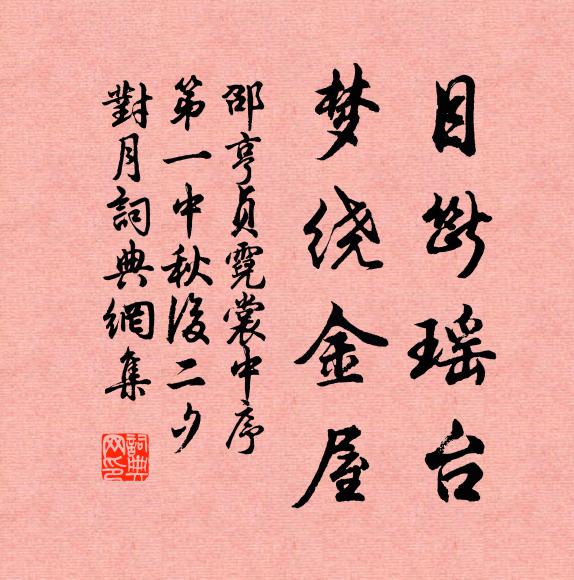 目断瑶台
梦绕金屋
邵亨贞霓裳中序
第一中秋后二夕
對月詞典網集
詞典网印